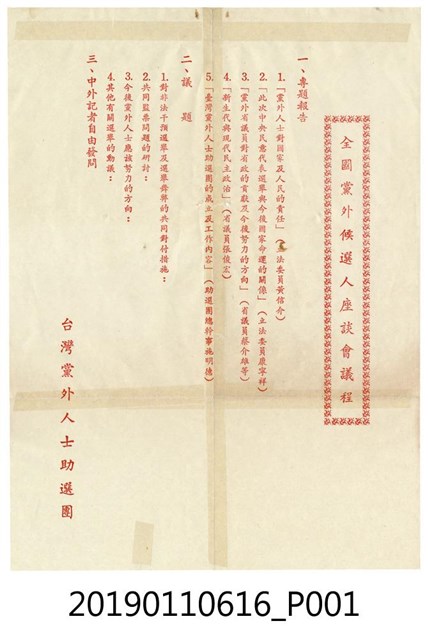 全國黨外候選人座談會議程
一、專題報告
1.「黨外人士對國家及人民的責任」(立法委員黃信介)
2.「此次中央民意代表選舉與今後國家命運的關係」(立法委員康寧祥)
3.「黨外省議員對省政的貢獻及今後努力的方向」(省議員蔡介雄等)
4.「新生代與現代民主政治」(省議員張俊宏)
5.「臺灣黨外人士助選團的成立及工作內容」(助選團總幹事施明德)
二、議題
1.對非法干擾選舉及選舉舞弊的共同對付措施:
2.共同監票問題的研討:
3.今後黨外人士應該努力的方向:
4.其他有關選舉的動議:
三、中外記者自由發問
台灣黨外人士助選團
20190110616_P001